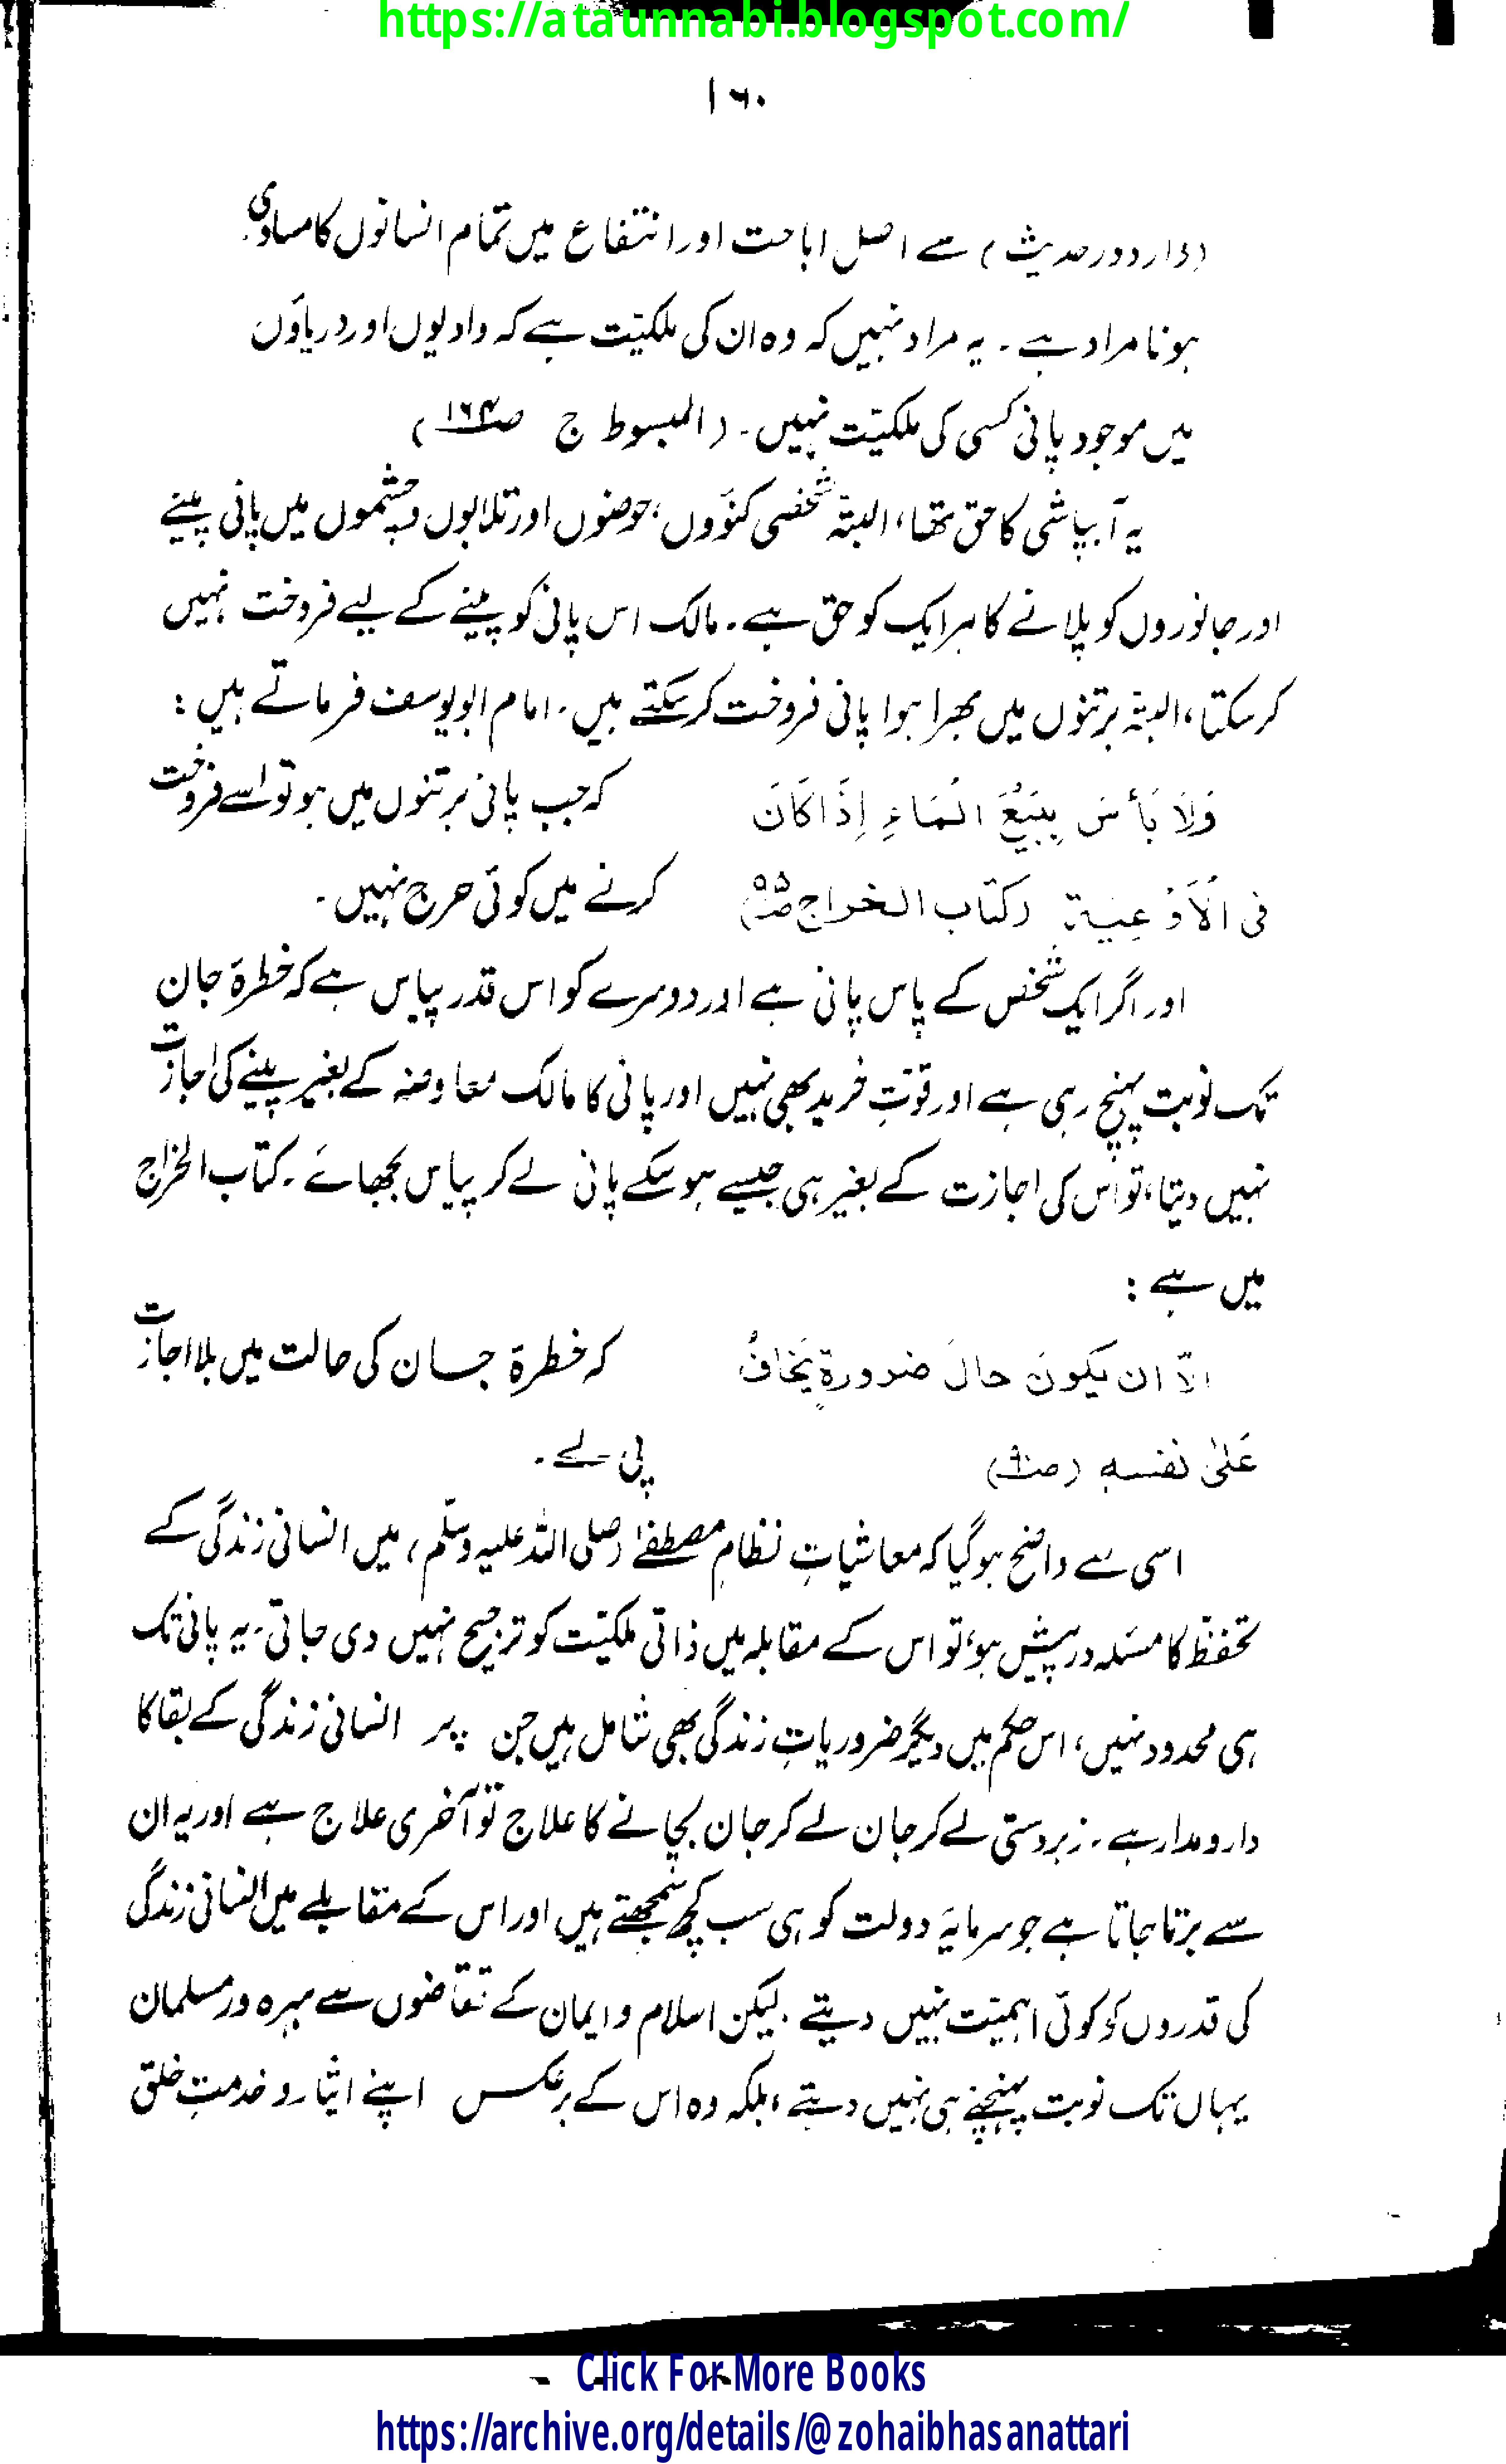 https://ataunnabi.blogspot.com/
۱۶۰
(وارد در حدیث) سے اصل اباحت اور انتفاع میں تمام انسانوں کا مساوی
ہونا مراد ہے۔ یہ مراد نہیں کہ وہ ان کی ملکیّت ہے کہ وادیوں اور دریاؤں
میں موجود پانی کسی کی ملکیّت نہیں۔ (المبسوط ج ص۱۶۴)
یہ آبپاشی کا حق تھا، البتّہ شخصی کنوَوں، حوضوں اور تلابوں و چشموں میں پانی پینے
اور جانوروں کو پلانے کا ہر ایک کو حق ہے۔ مالک اس پانی کو پینے کے لیے فروخت نہیں
کر سکتا، البتہ برتنوں میں بھرا ہوا پانی فروخت کر سکتے ہیں۔ امام ابو یوسف فرماتے ہیں:
وَلَا بَأسَ بِبَیْعِ الْمَاءِ اِذَا کَانَ کہ جب پانی برتنوں میں ہو تو اسے فروخت
فی الْاَوْعِیۃ (کتاب الخراج ص۹۵) کرنے میں کوئی حرج نہیں۔
اور اگر ایک شخص کے پاس پانی ہے اور دوسرے کو اس قدر پیاس ہے کہ خطرۂ جان
تک نوبت پہنچ رہی ہے اور قوّتِ خرید بھی نہیں اور پانی کا مالک معاوضہ کے بغیر پینے کی اجازت
نہیں دیتا، تو اس کی اجازت کے بغیر ہی جیسے ہو سکے پانی لے کر پیاس بجھائے۔ کتاب الخراج
میں ہے:
الّا ان یکونَ حالَ ضرورۃٍ یَخافُ کہ خطرۂ جان کی حالت میں بلا اجازت
عَلیٰ نفسہٖ پی لے۔
اسی سے واضح ہو گیا کہ معاشیاتِ نظامِ مصطفےٰ (صلی اللہ علیہ وسلّم) میں انسانی زندگی کے
تحفظ کا مسئلہ درپیش ہو، تو اس کے مقابلہ میں ذاتی ملکیّت کو ترجیح نہیں دی جاتی۔ یہ پانی تک
ہی محدود نہیں، اس حکم میں دیگر ضروریاتِ زندگی بھی شامل ہیں جن پر انسانی زندگی کے بقا کا
دارومدار ہے۔ زبردستی لے کر جان لے کر جان بچانے کا علاج تو آخری علاج ہے اور یہ ان
سے برتا جاتا ہے جو سرمایۂ دولت کو ہی سب کچھ سمجھتے ہیں اور اس کے مقابلے میں انسانی زندگی
کی قدروں کو کوئی اہمیّت نہیں دیتے۔ لیکن اسلام و ایمان کے تقاضوں سے بہرہ ور مسلمان
یہاں تک نوبت پہنچنے ہی نہیں دیتے، بلکہ وہ اس کے برعکس اپنے ایثار و خدمتِ خلق
Click For More Books
https://archive.org/details/@zohaibhasanattari